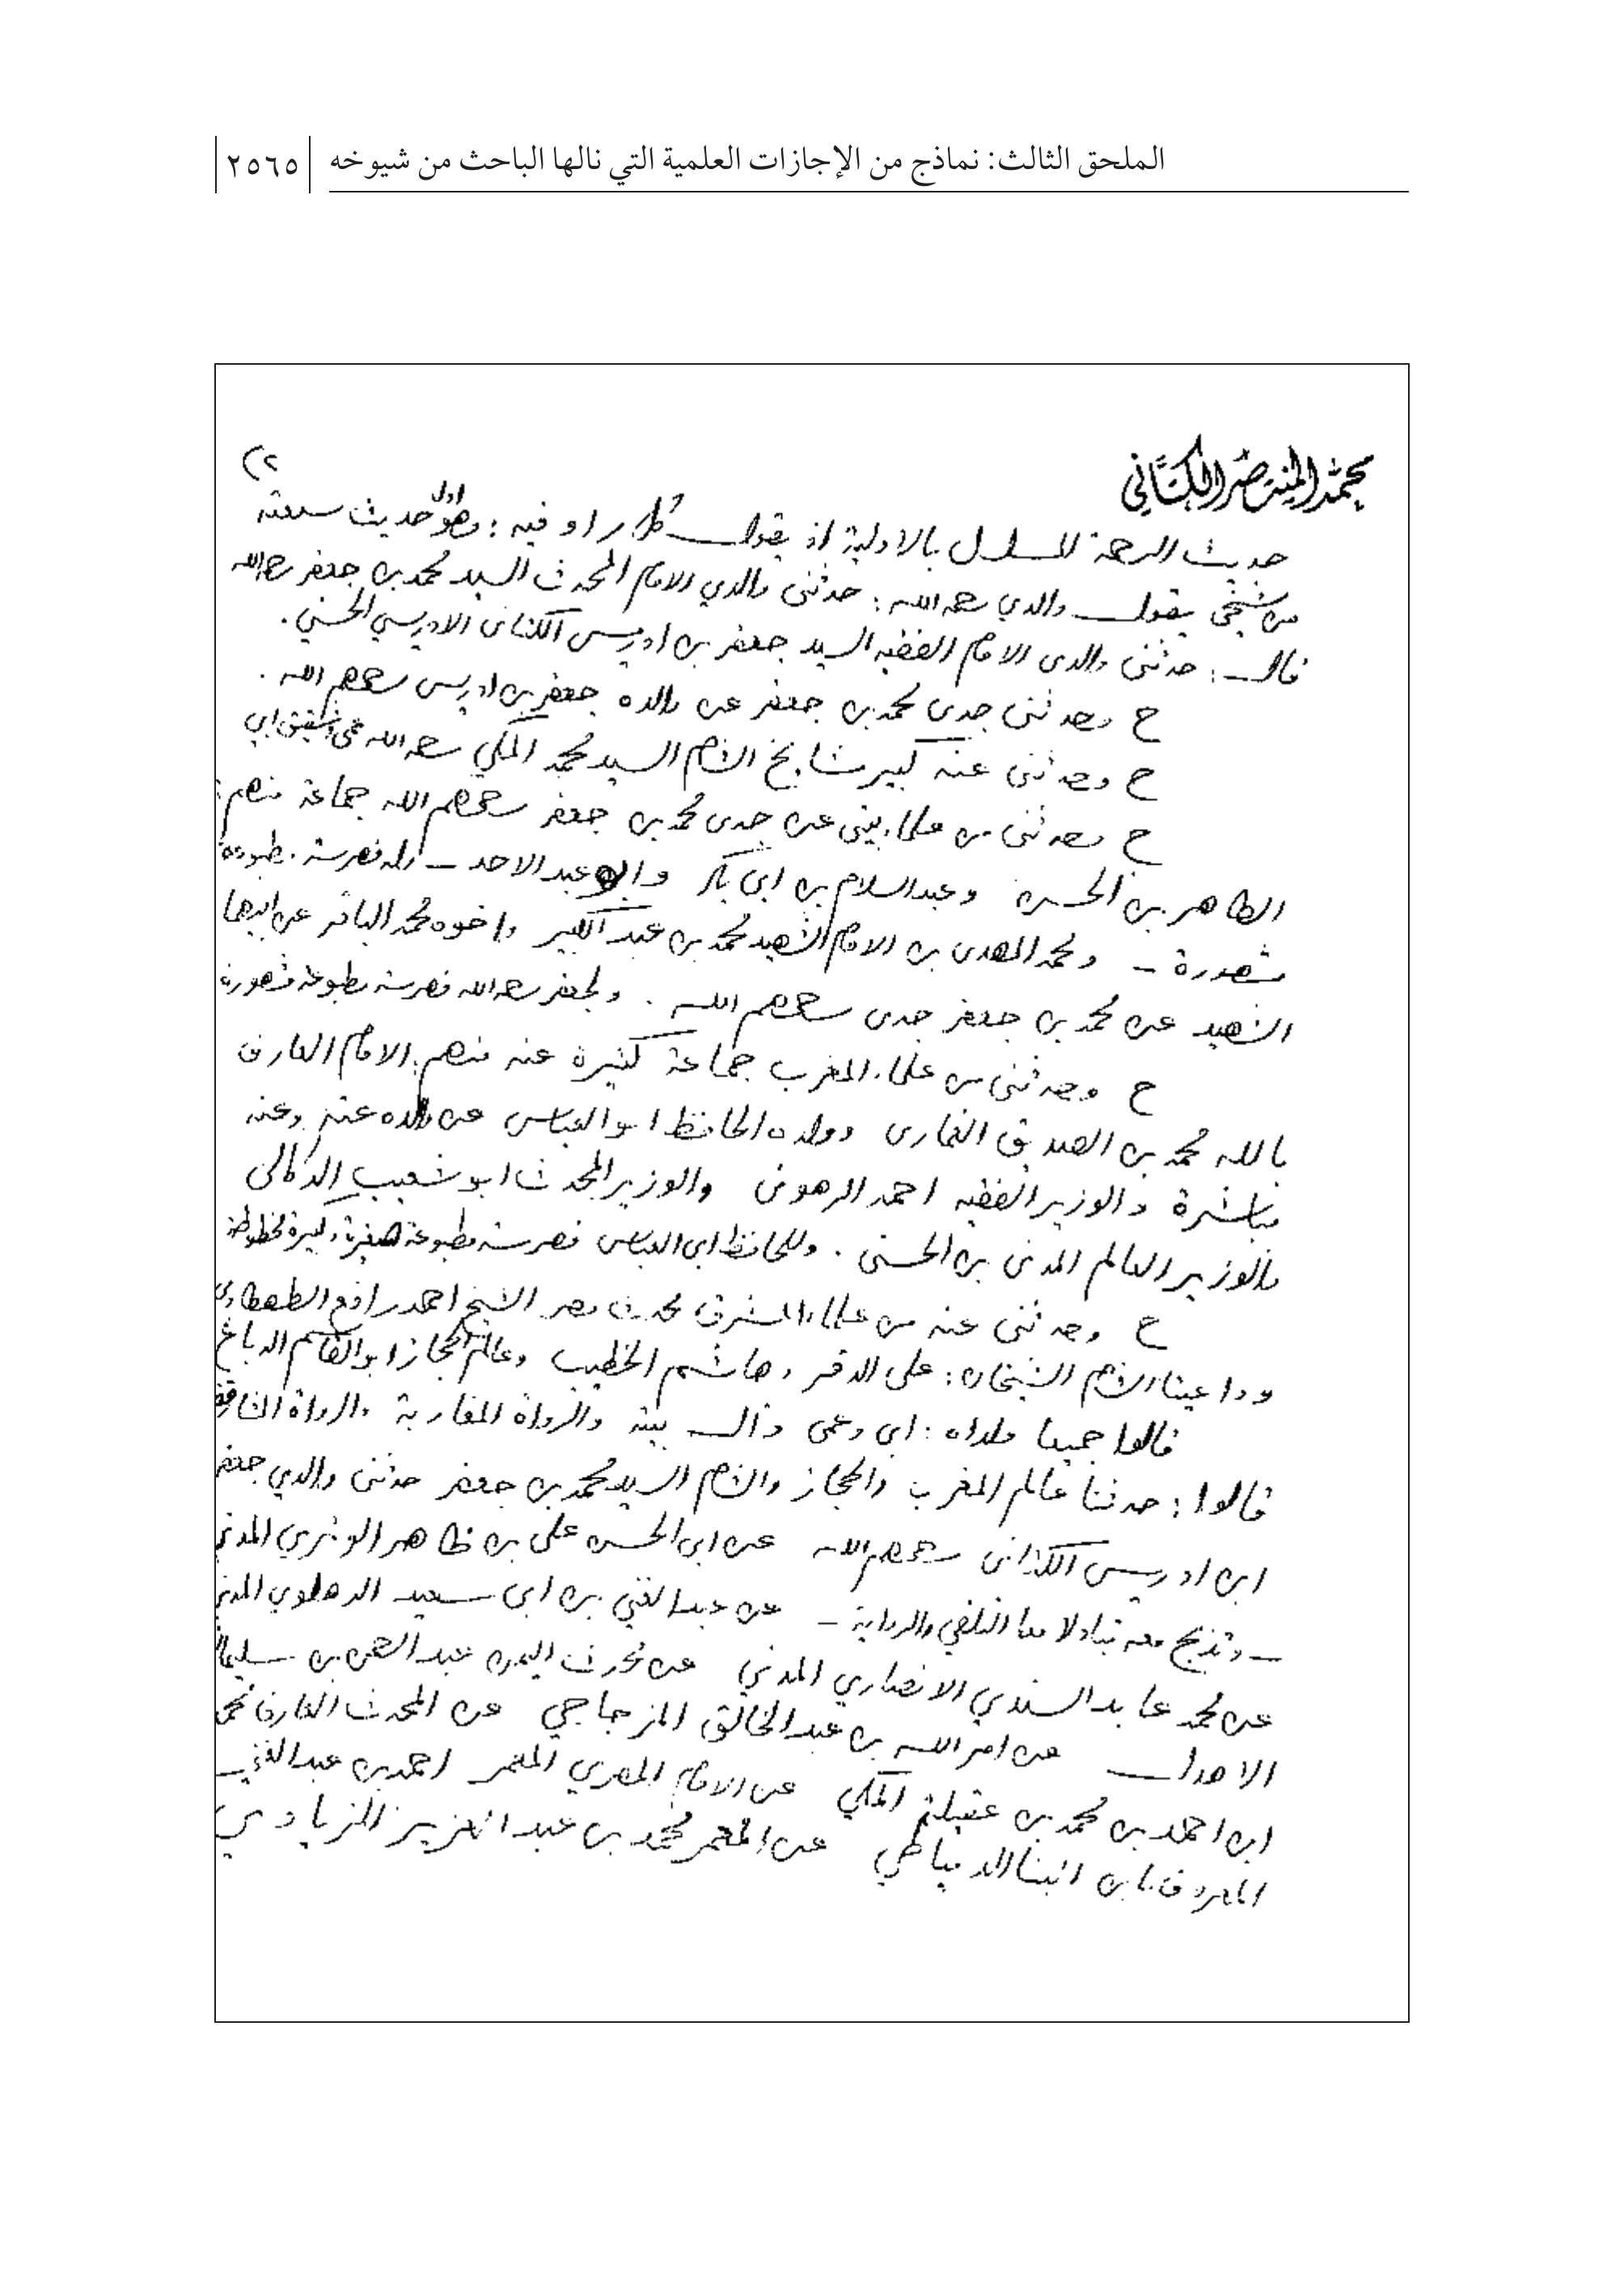 الملحق الثالث: نماذج من الإجازات العلمية التي نالها الباحث من شيوخه
٢٥٦٥
محمد المنتصر الكتاني
(٢
حديث الرحمة المسلسل بالاولية اذ يقول كل راو فيه : وهو اول حديث سمعته
من شيخي يقول والدي رحمه الله : حدثني والدي الامام المحدث السيد محمد بن جعفر رحمه الله
قال : حدثني والدي الامام الفقيه السيد جعفر بن ادريس الكتاني الادريسي الحسني .
ح وحدثني جدي محمد بن جعفر عن والده جعفر بن ادريس رحمهم الله .
ح وحدثني عنه كبير مشايخ الشام السيد محمد المكي رحمه الله عمي وشقيق ابي
ح وحدثني من علماء بيتي عن جدي محمد بن جعفر رحمهم الله جماعة منهم :
الطاهر بن الحسن وعبد السلام بن ابي بكر وابو عبد الاحد – وله فهرسة مطبوعة
مشهورة – ومحمد المهدي بن الامام الشهيد محمد بن عبد الكبير واخوه محمد الباقر عن ابيهما
الشهيد عن محمد بن جعفر جدي رحمهم الله . ولجعفر رحمه الله فهرسة مطبوعة مشهورة
ح وحدثني من علماء المغرب جماعة كثيرة عنه منهم : الامام العارف
بالله محمد بن الصديق الغماري وولده الحافظ ابو العباس عن والده عنه وعنه
مباشرة والوزير الفقيه احمد الرهوني والوزير المحدث ابو شعيب الدكالي
والوزير العالم المدني بن الحسني . وللحافظ ابي العباس فهرسة مطبوعة صغيرة وكبيرة مخطوطة
ح وحدثني عنه من علماء المشرق محدث مصر الشيخ احمد رافع الطهطاوي
وداعيتا الشام الشيخان : علي الدقر وهاشم الخطيب وعالم الحجاز ابو القاسم الدباغ
قالوا جميعا ولداه : ابي وعمي وآل بيته والرواة المغاربة والرواة المشارقة
قالوا : حدثنا عالم المغرب والحجاز والشام السيد محمد بن جعفر حدثني والدي جعفر
ابن ادريس الكتاني رحمهم الله عن ابي الحسن علي بن ظاهر الوتري المدني
– وتدبج معه تبادلا معا التلقي والرواية – عن عبد الغني بن ابي سعيد الدهلوي المدني
عن محمد عابد السندي الانصاري المدني عن محدث اليمن عبد الرحمن بن سليمان
الاهدل عن امر الله بن عبد الخالق المزجاجي عن المحدث العارف محمد
ابن احمد بن محمد بن عقيلة المكي عن الامام المصري المعمر احمد بن عبد الغني
المعروف بابن البنا الدمياطي عن المعمر محمد بن عبد العزيز الزيادي